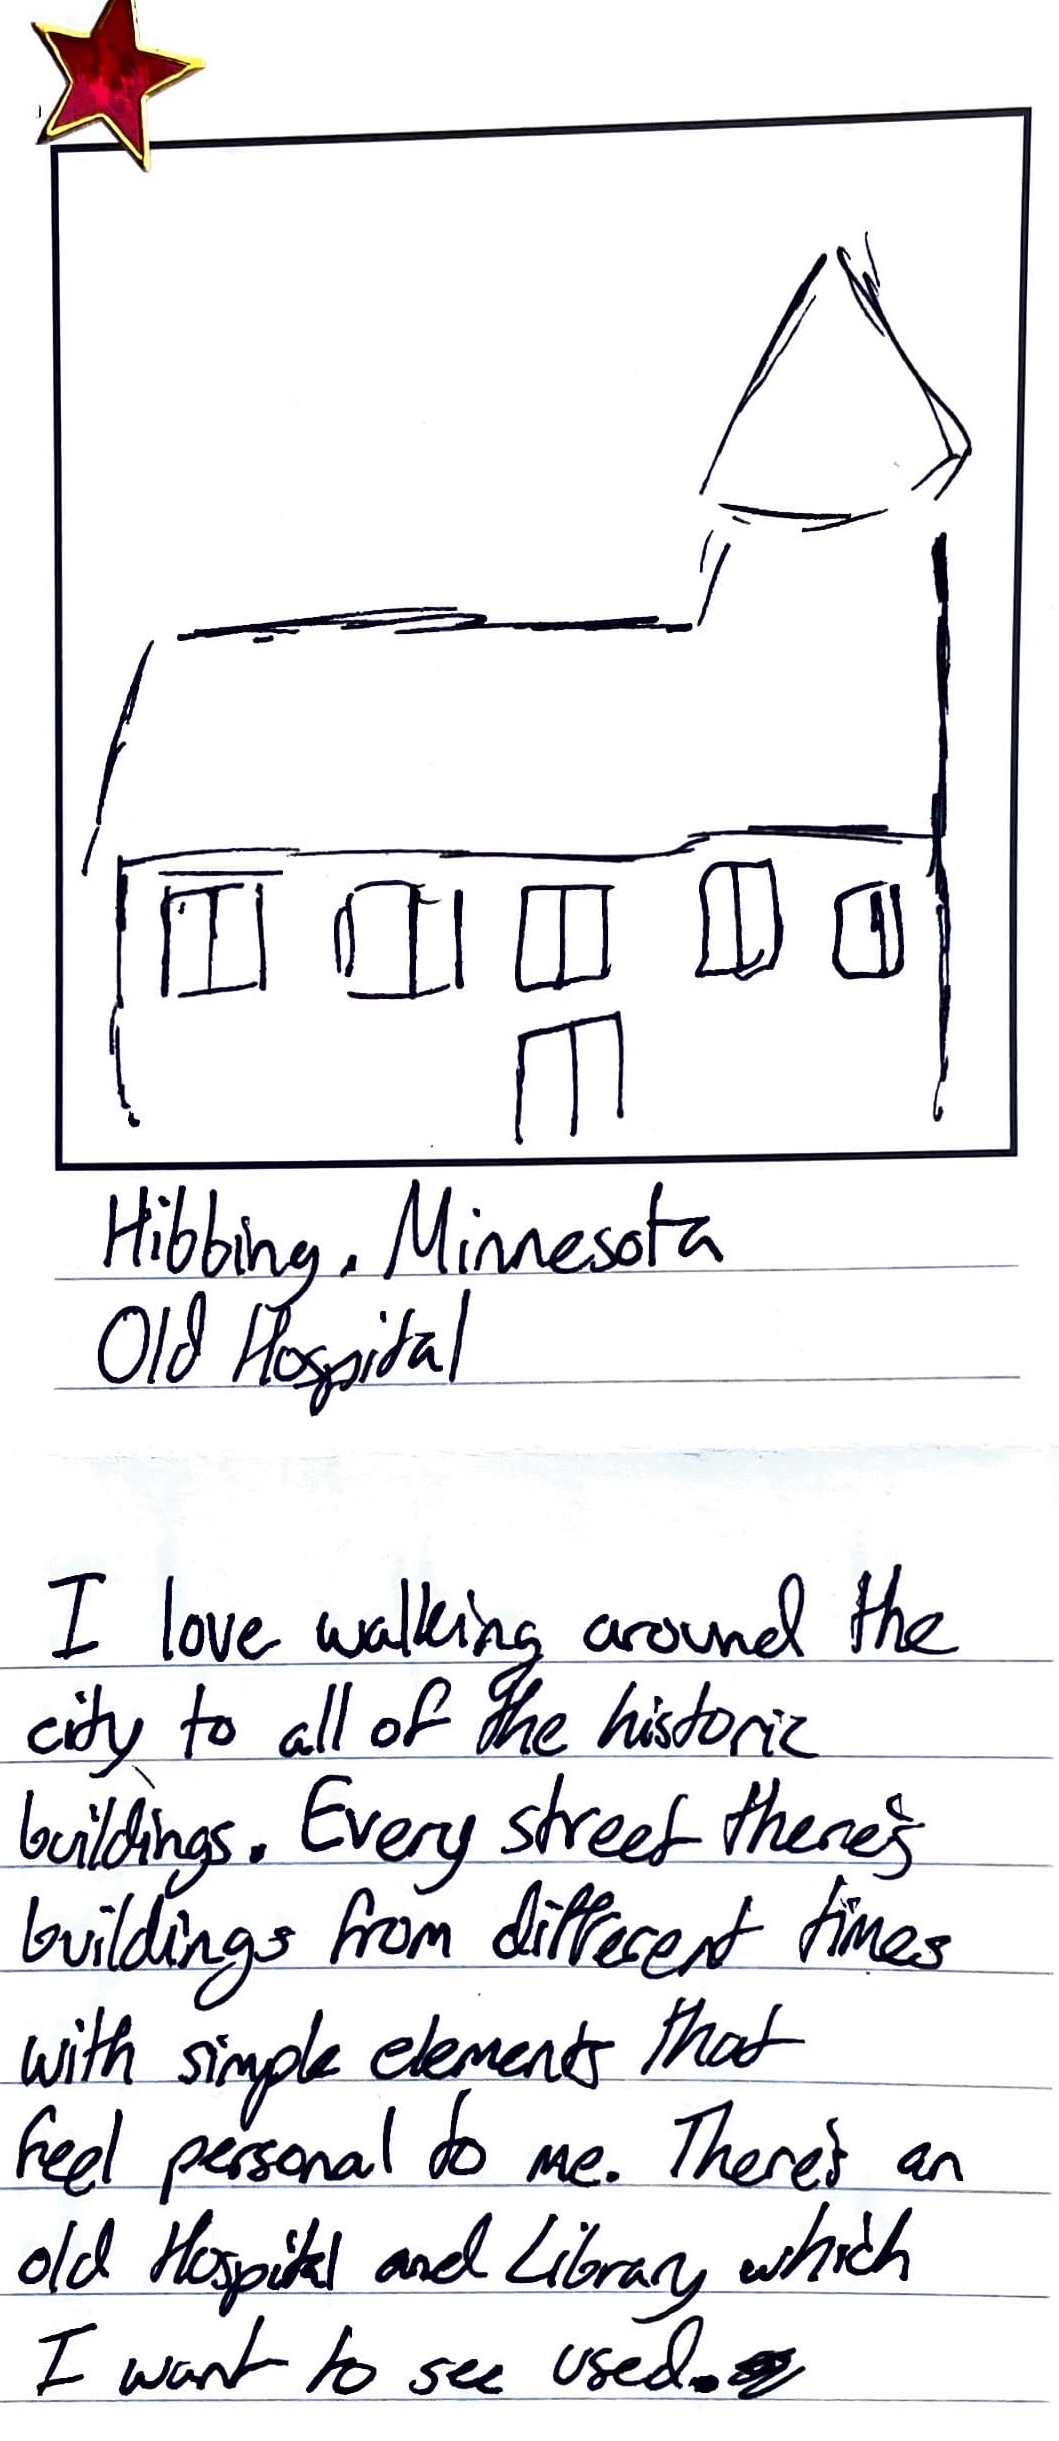 Hibbing. Minnesota
Old Hospital
I love walking around the
city to all of the historic
buildings. Every street there's
buildings from different times
with simple elements that
feel personal to me. There's an
old Hospital and Library which
I want to see used.